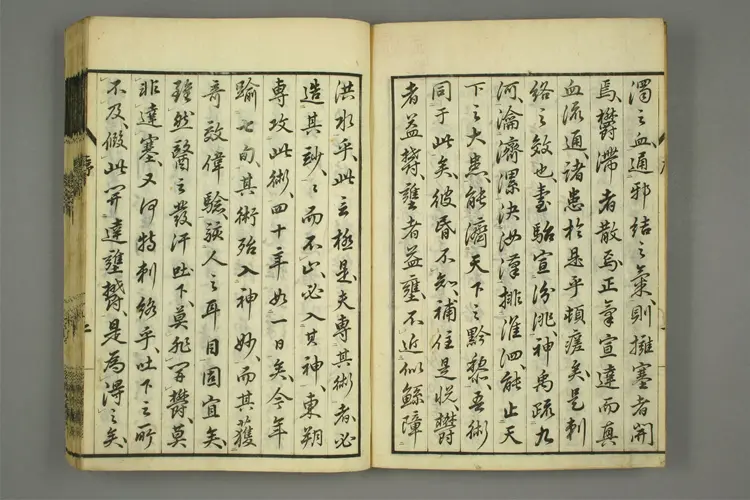 濁之血通邪結之氣則擁塞者開
焉鬱滯者散焉正氣宣達而真
血流通諸患於是乎頓瘥矣是刺
絡之效也臺駘宣汾洮神禹疏九
河瀹濟漯決汝漢排淮泗能止天
下之大患能濟天下之黔黎吾術
同于此矣彼昏不知補住是悅鬱
者益鬱壅者益壅不近似鯀障
洪水乎此之極是夫專其術者必
造其玅〻而不止必入其神東朔
專攻此術四十年如一日矣今年
踰七旬其術殆入神妙而其獲
奇效偉驗駭人之耳目固宜矣
雖然醫之發汗吐下莫非開鬱莫
非達塞又何特刺絡乎吐下之所
不及假此開達壅鬱是為得之矣
序
二